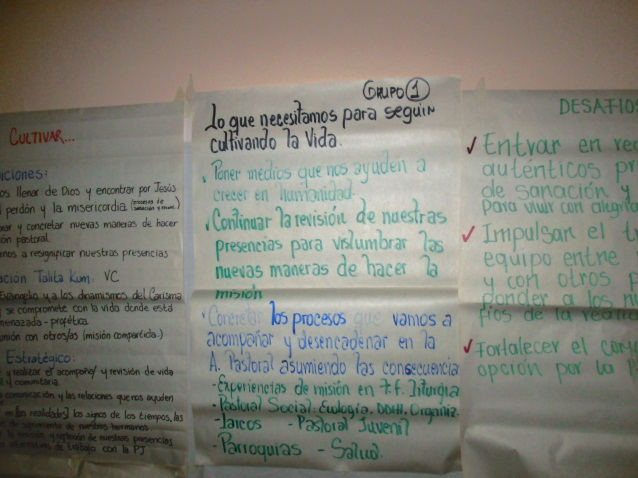 CULTIVAR...
iciones:
os llenar de Dios y encontrar por Jesús
l perdón y la misericordia
y concretar nuevas maneras de hacer
ón pastoral.
nos a resignificar nuestras presencias
ación Talita Kum. VC
Evangelio y a los dinamismos del Carisma
se compromete con la vida donde está
menazada - profética.
unión con otros/as (misión compartida.)
Estratégico:
y realizar el acompaño/ y revisión de vida
l y comunitaria
comunicación y las relaciones que nos ayuden
los signos de los tiempos, las
de nuestros hermanos
de nuestras presencias
de trabajo con la PJ
GRUPO 1
Lo que necesitamos para seguir
cultivando la Vida.
Poner medios que nos ayuden a
crecer en humanidad.
Continuar la revisión de nuestras
presencias para vislumbrar las
nuevas maneras de hacer la
misión
Concretar los procesos que vamos a
acompañar y desencadenar en la
A. Pastoral asumiendo las consecuencia
- Experiencias de misión en Liturgia
- Pastoral Social: Ecología. DDHH. Organiz.
- Laicos - Pastoral Juvenil
- Parroquias - Salud.
DESAFIOS
✓ Entrar en rec
auténticos pr
de sanación y
para vivir con alegría
✓ Impulsar el t
equipo entre
y con otros p
ponder a los n
fíos de la realid
✓ Fortalecer el com
opción por la P